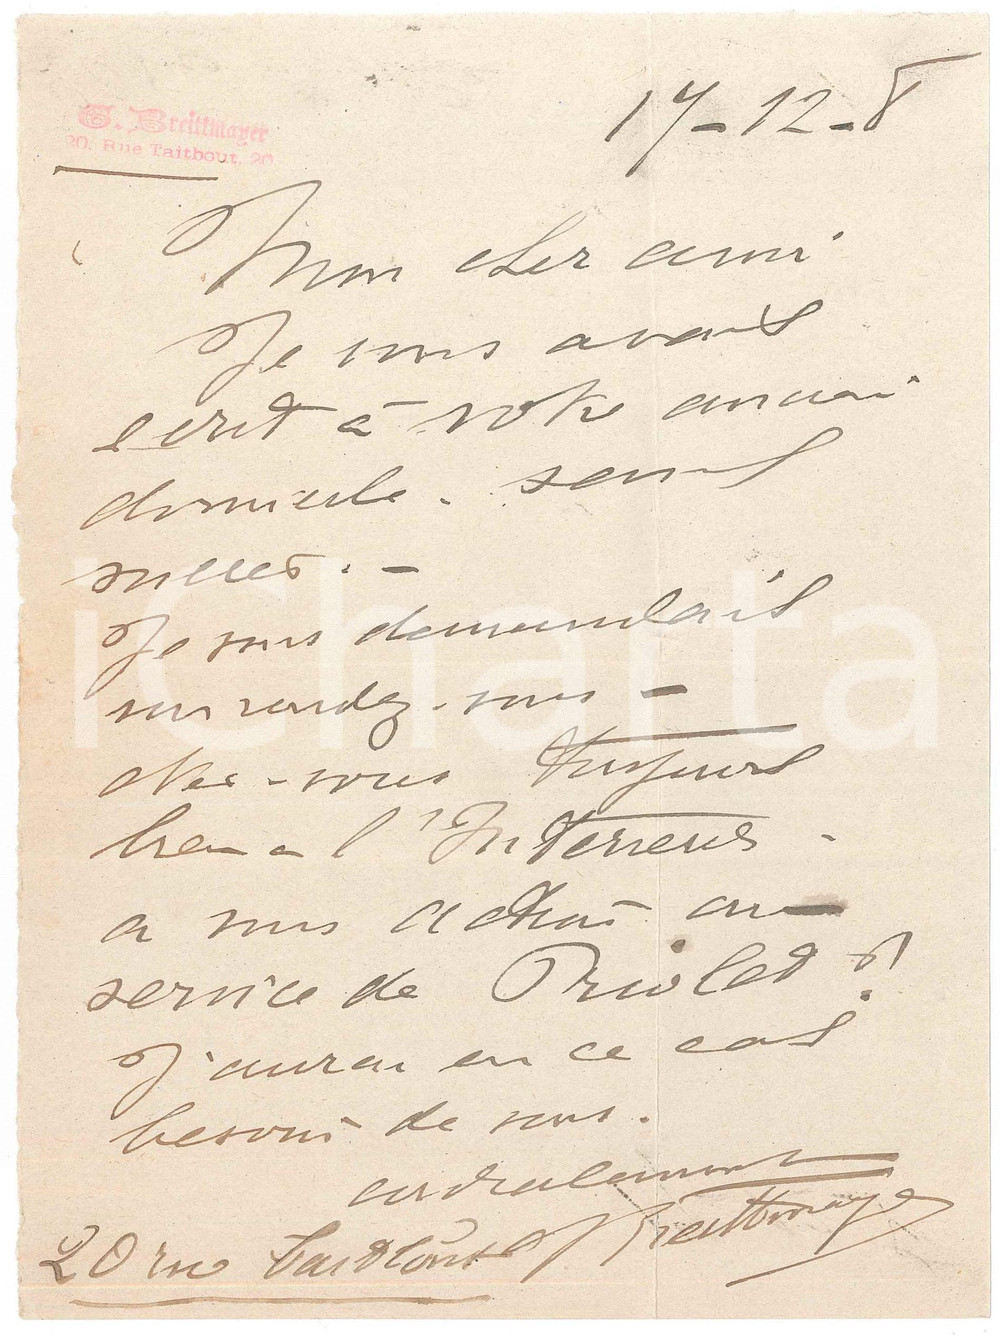 G. Breittmayer
20, Rue Taitbout, 20
17-12-8
Mon cher ami
Je vous avais
écrit à votre ancien
domicile. sans
succès. -
Je vous demandais
un rendez-vous -
êtes-vous toujours
bien à l'Intérieur -
à vous attaché au
service de Priolet ?
J'aurai en ce cas
besoin de vous.
cordialement
G Breittmayer
20 rue Taitbout
iCharta